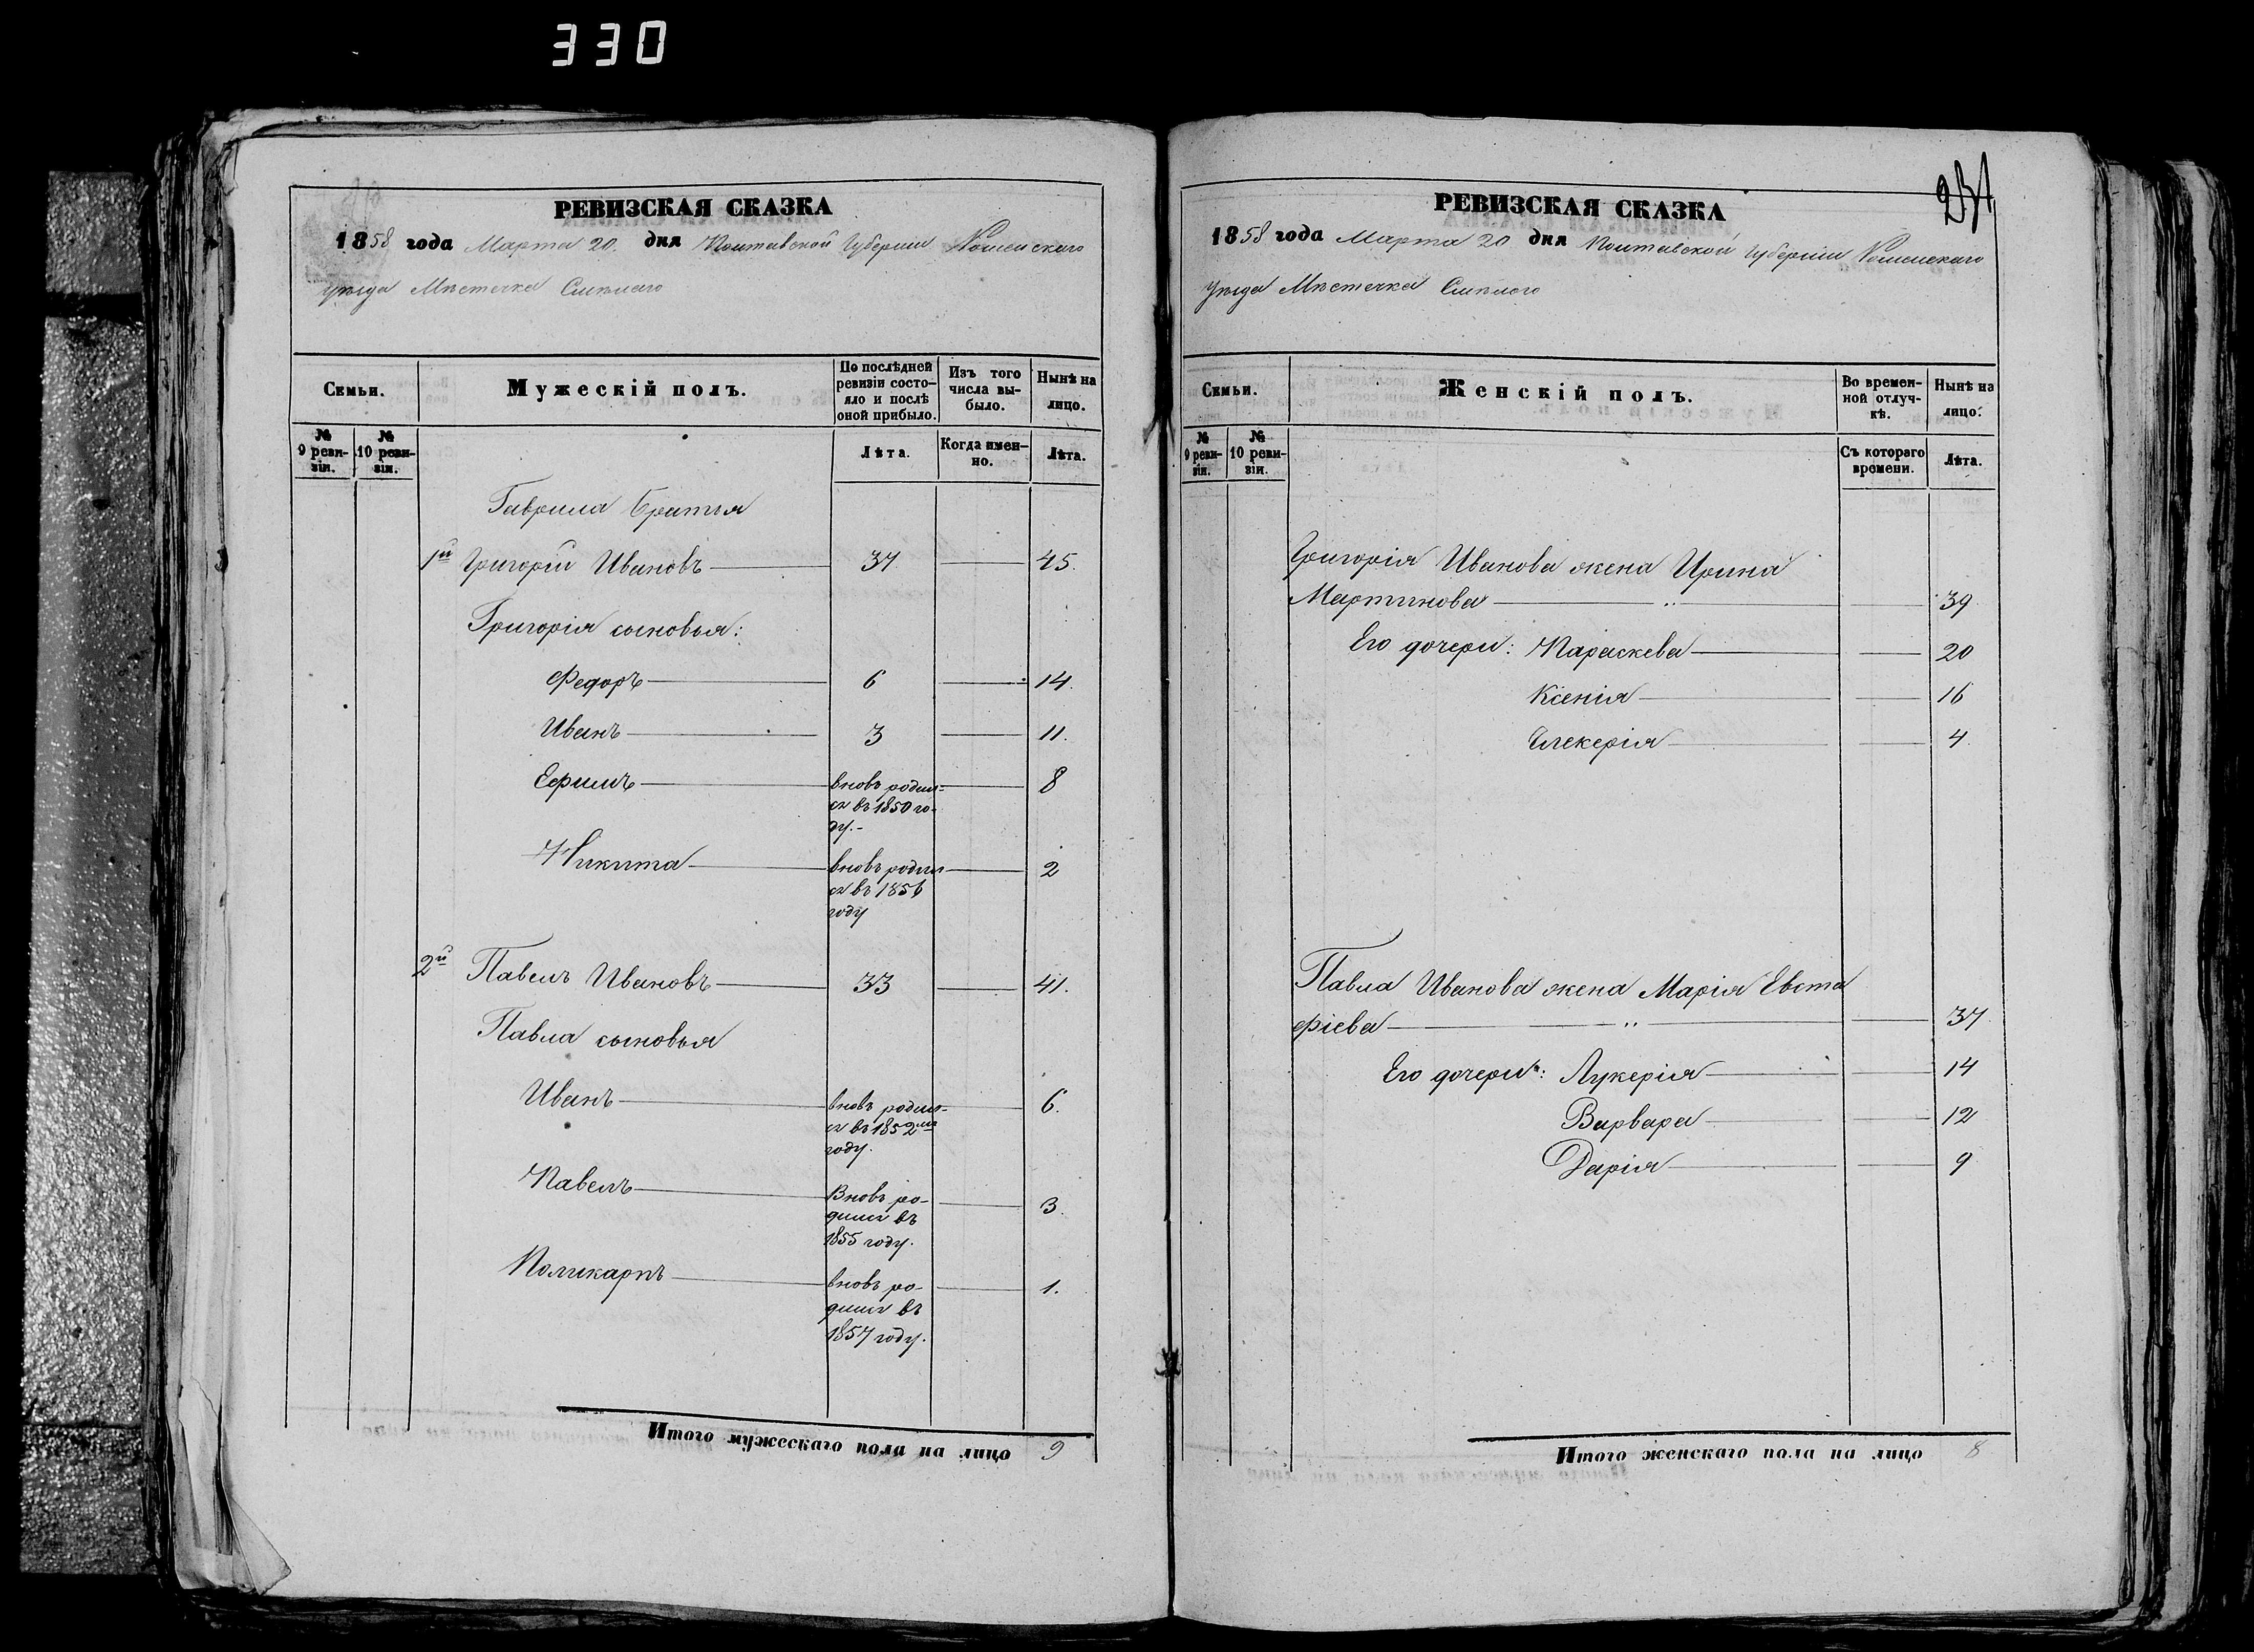 330
РЕВИЗСКАЯ СКАЗКА
1858 года Марта 20. дня Полтавской Губернии Роменского
уѣзда Мѣстечка Смѣлаго
Семьи.
Мужескій полъ.
По послѣдней ревизіи состо-яло и послѣ оной прибыло.
Изъ того числа вы-было.
Нынѣ на лицо.
№ 9 реви-зіи.
№ 10 реви-зіи.
Лѣта.
Когда имен-но.
Лѣта.
Гаврила братья
1й Григорій Ивановъ 37 45.
Григорія сыновья:
Федоръ 6 14.
Иванъ 3 11.
Ефимъ вновь родил- 8
ся въ 1850 го-
ду.-
Никита вновь родил 2
ся въ 1856
году
2й Павелъ Ивановъ 33 41.
Павла сыновья
Иванъ вновь родил- 6.
ся въ 1852мъ
году.
Павелъ Вновь ро- 3.
дился въ
1855 году.
Поликарпъ вновь ро- 1.
дился въ
1857 году.
Итого мужескаго пола на лицо 9
231
РЕВИЗСКАЯ СКАЗКА
1858 года Марта 20 дня Полтавской Губерніи Роменскаго
уѣзда Мѣстечка Смѣлого
Семьи.
Женскій полъ.
Во времен-ной отлуч-кѣ.
Нынѣ на лицо.
№ 9 реви-зіи.
№ 10 реви-зіи.
Съ котораго времени.
Лѣта.
Григорія Иванова жена Ирина
Мартинова 39
Его дочери: Параскева 20
Ксенія 16
Гликерія 4
Павла Иванова жена Марія Евста
фіева 37
Его дочери: Лукерія 14
Варвара 12
Дарія 9
Итого женскаго пола на лицо 8